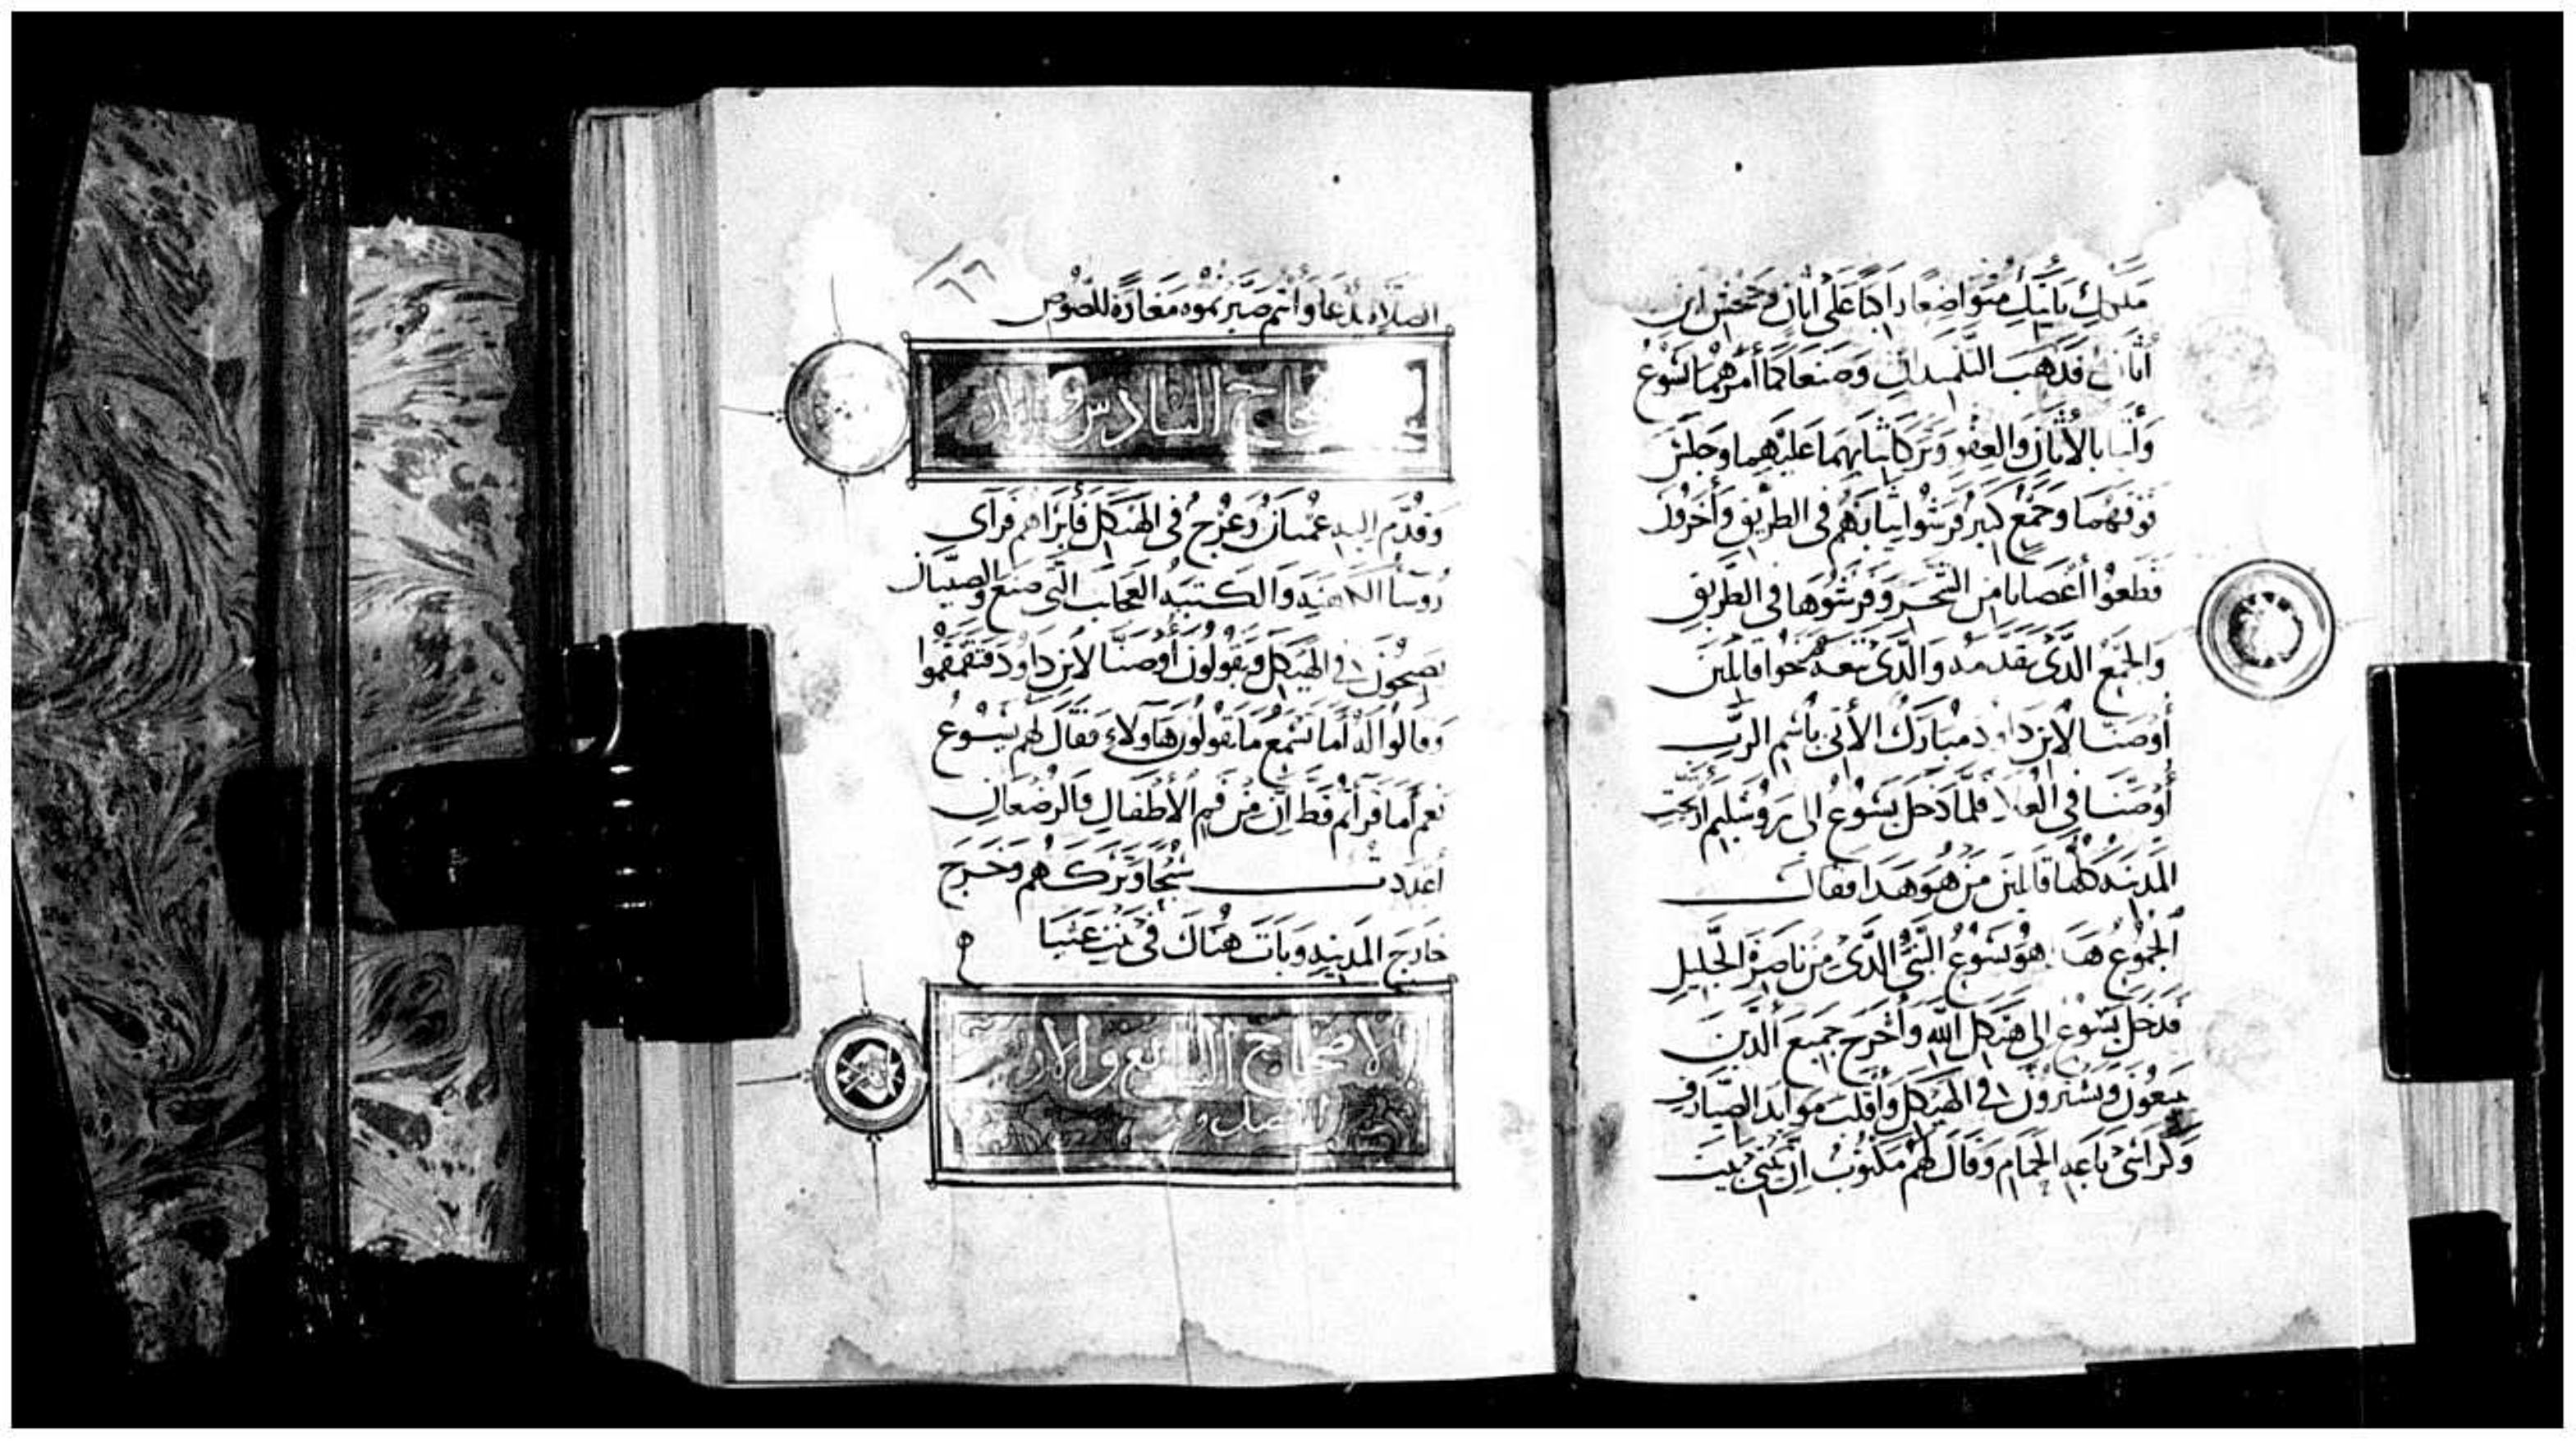 ملكك يأتيك متواضعا راكبا على أتان وجحش ابن
أتان فذهب التلميذان وصنعا كما أمرهما يسوع
وأتيا بالأتان والعفو وتركا ثيابهما عليهما وجلس
فوقهما وجمع كبير فرشوا ثيابهم في الطريق وأخرون
قطعوا أغصانا من الشجر وفرشوها في الطريق
والجمع الذي تقدمه والذي تبعه صرخوا قائلين
أوصنا لابن داود مبارك الآتي باسم الرب
أوصنا في العلا فلما دخل يسوع الى يروشليم ارتجت
المدينة كلها قائلين من هو هذا فقال
الجموع هذا هو يسوع النبي الذي من ناصرة الجليل
فدخل يسوع الى هيكل الله وأخرج جميع الذين
يبيعون ويشترون في الهيكل وأقلب موايد الصيارف
وكراسي باعة الحمام وقال لهم مكتوب ان بيتي بيت
٦٦
الصلاة يدعا وأنتم صيرتموه مغارة للصوص
السادس والار
وقدم اليه عميان وعرج في الهيكل فأبراهم فرأى
روسا الكهنة والكتبة العجايب التي صنع والصبيان
يصيحون في الهيكل ويقولون أوصنا لابن داود فتقمقموا
وقالوا له أما تسمع ما يقولون هاولاء فقال لهم يسوع
نعم أما قرأتم قط ان من فم الأطفال والرضعان
أعددت سبحا وتركهم وخرج
خارج المدينة وبات هناك في بيت عنيا
الاصحاح السابع والار